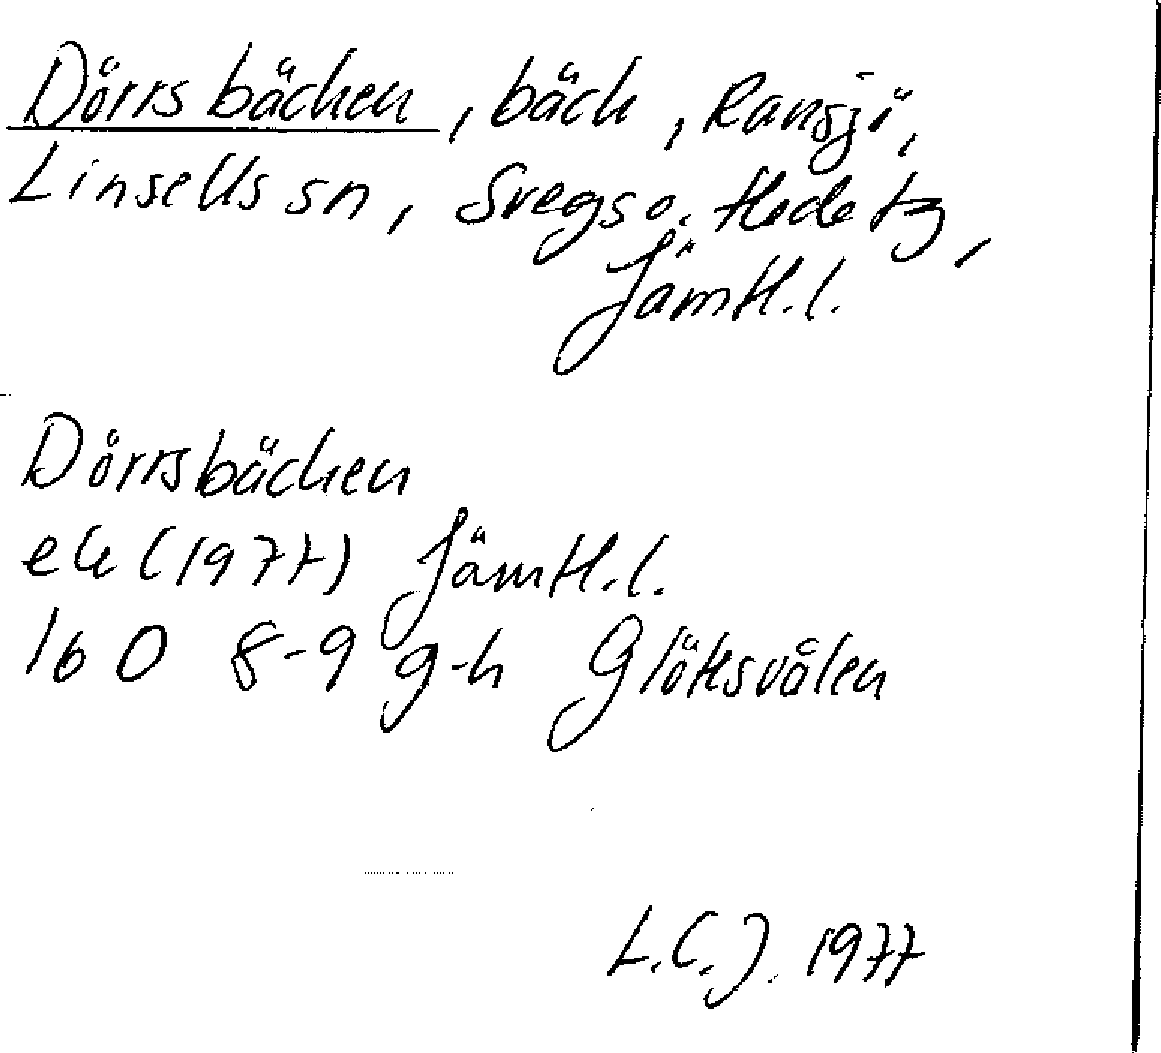 Dörrsbäcken, bäck, Ransjö,
Linsells sn, Svegs o. Hede tg,
Jämtl.l.
Dörrsbäcken
ek (1977) Jämtl.l.
16 D 8-9 g-h Glöttsvålen
L.C.J. 1977